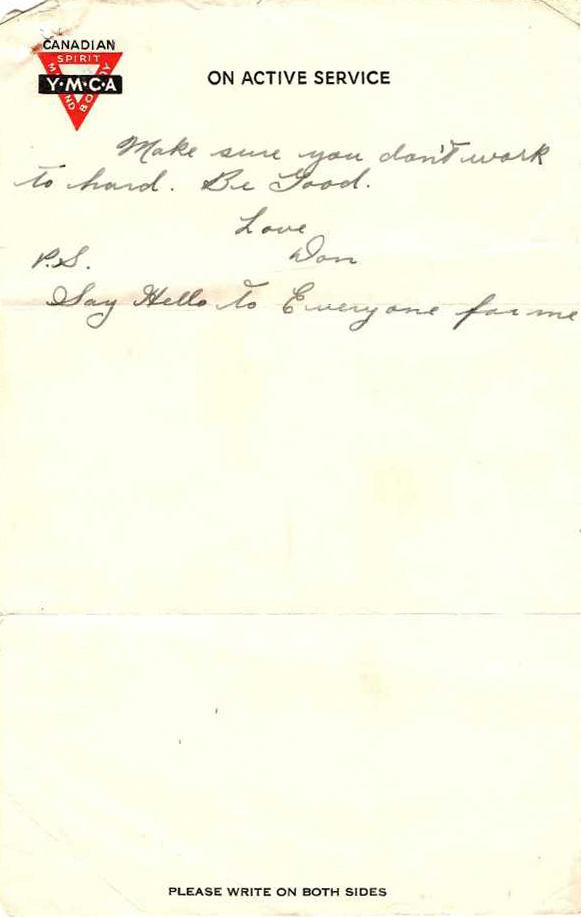 CANADIAN
SPIRIT
MIND
BODY
Y·M·C·A
ON ACTIVE SERVICE
Make sure you don't work
to hard. Be Good.
Love
Don
P.S.
Say Hello to Everyone for me
PLEASE WRITE ON BOTH SIDES